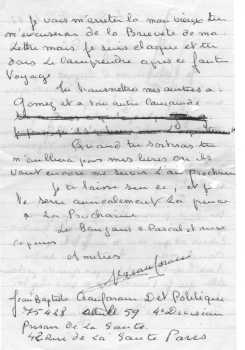 je vais m'arreter la mon vieux tu
m'excuseras de la Brieveté de ma
Lettre mais je suis claqué et tu
dois le comprendre apres ce faux
Voyage
Tu transmettras mes amitiés a
Gomez et a ton autre Camarade
Quand tu sortiras tu
m'oublieras pas mes livres on
vont encore me servir l'an prochain
je te laisse sur ce, et je
te serre amicalement la pince
a La Prochaine
Le Bonjour a Pascal et aux
copains
et autres
Jean Baptiste Détpolitique
75428 59 4e Division
Prison De La Santé
42 Rue de La Santé Paris